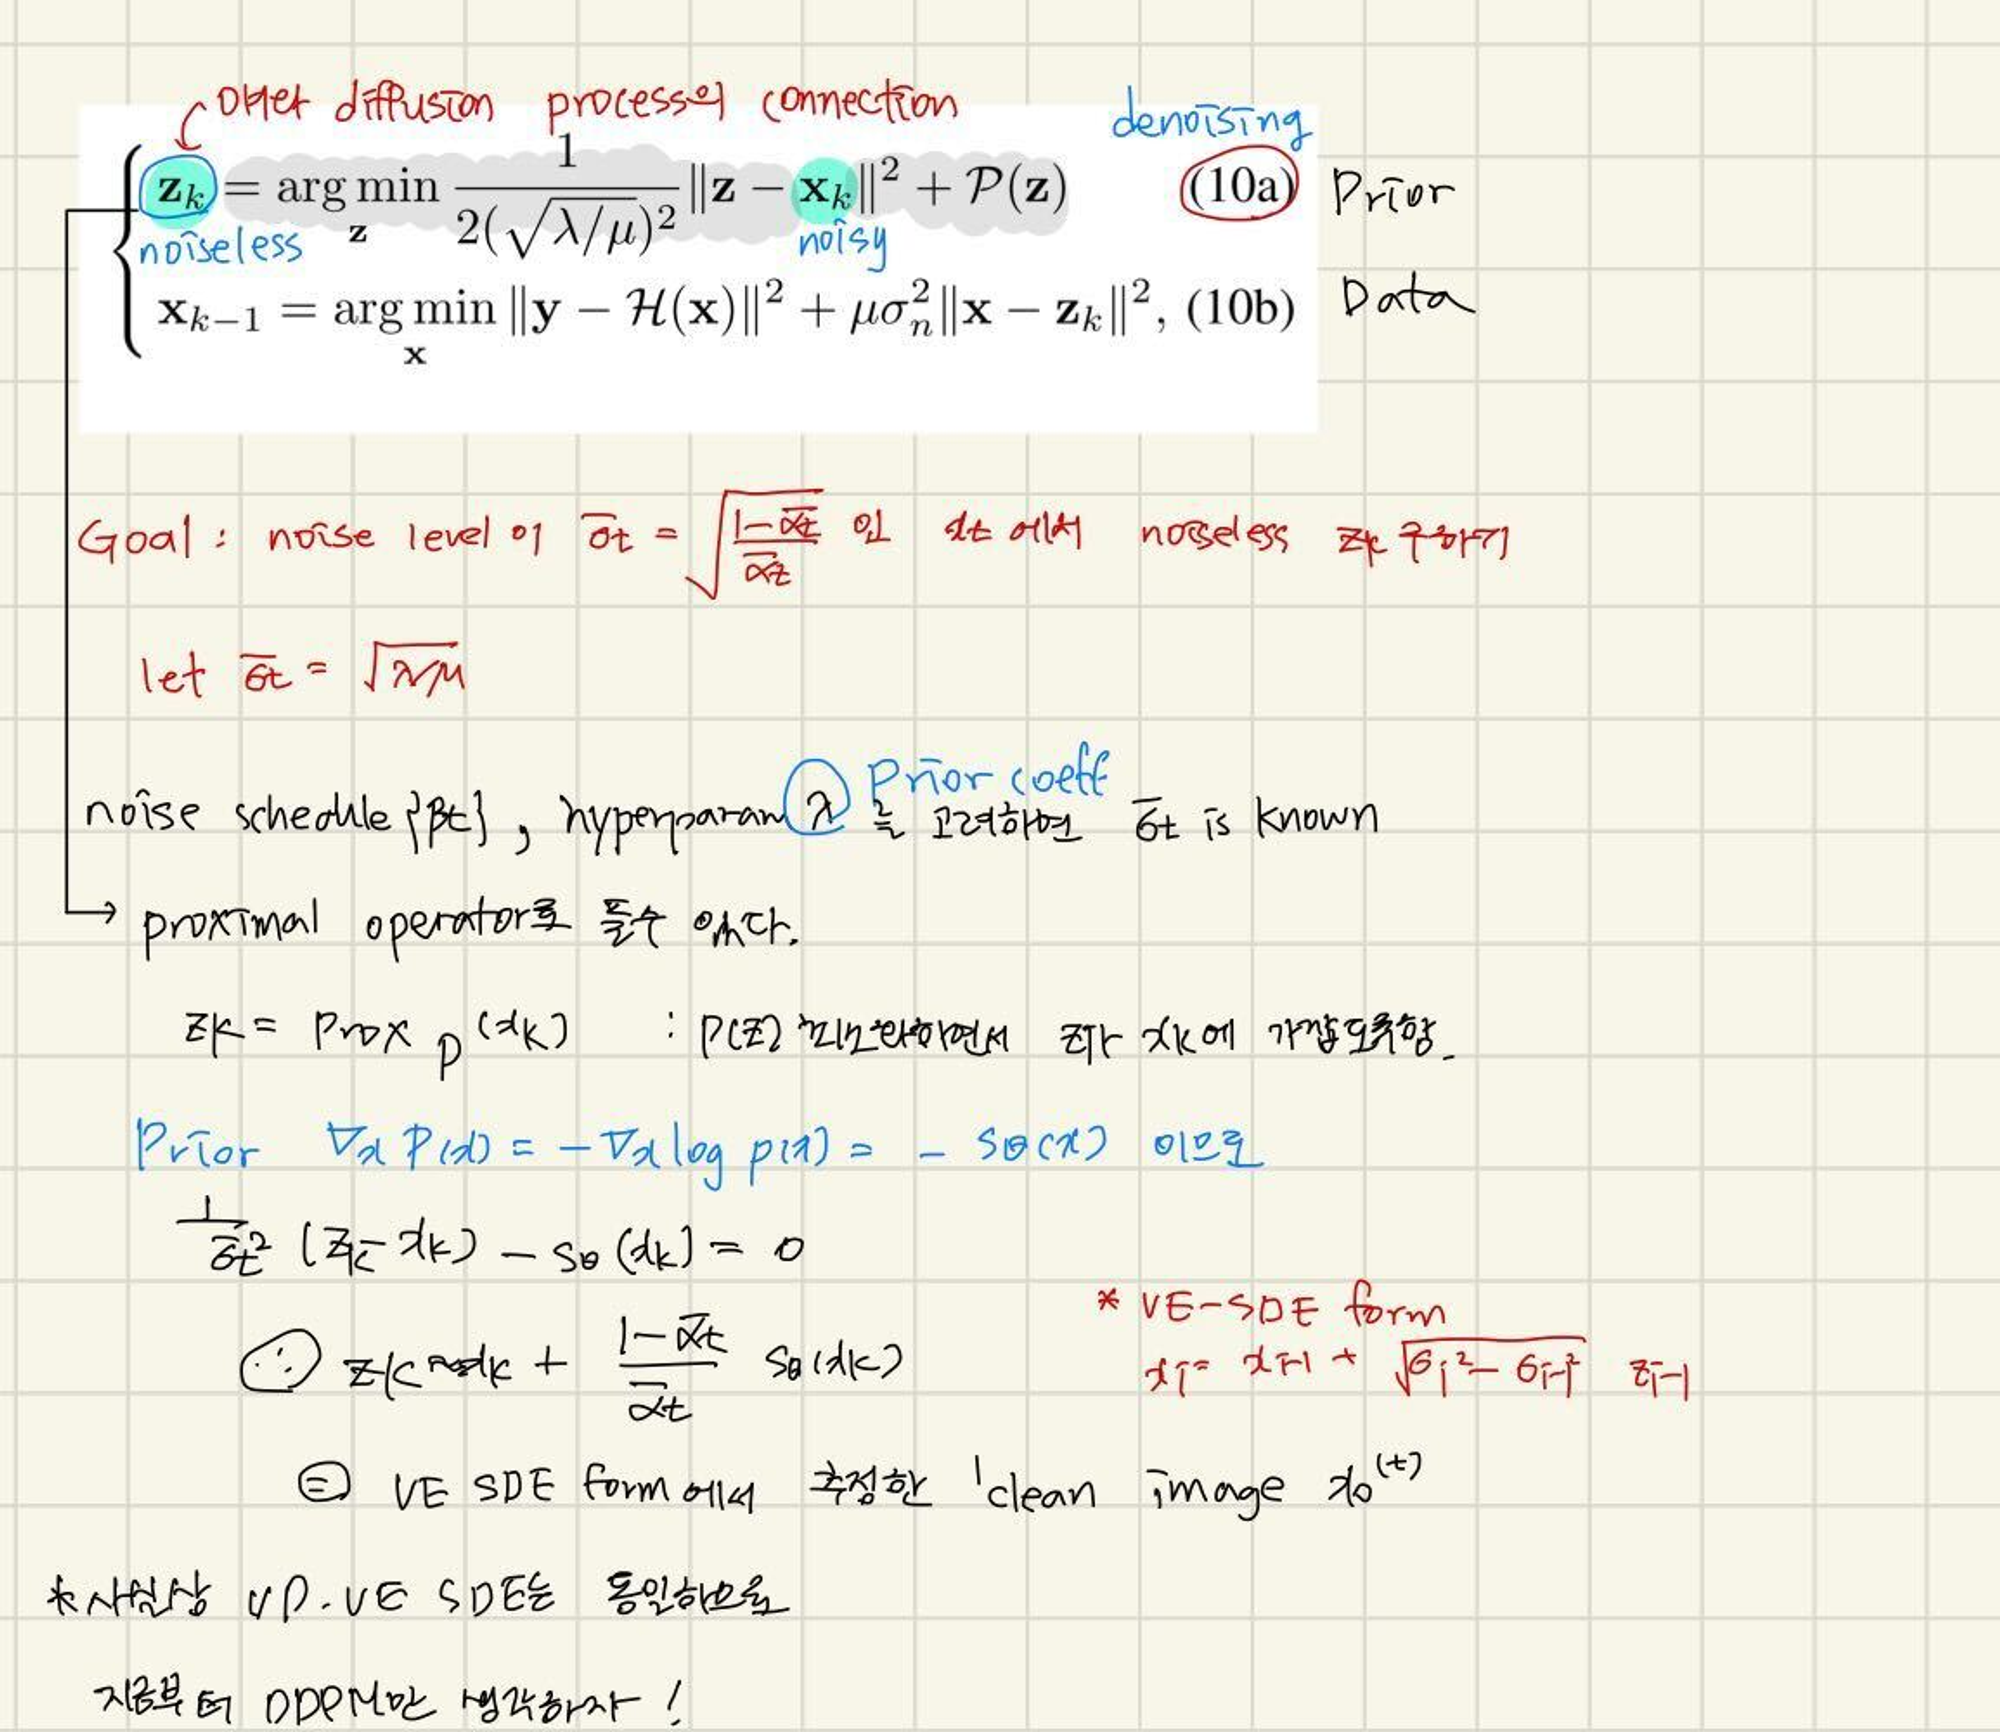 어떤 diffusion process의 connection
denoising
z_k = arg min_z 1/(2(√λ/μ)²) ‖z − x_k‖² + P(z) (10a) Prior
noiseless noisy
x_{k−1} = arg min_x ‖y − H(x)‖² + μσ_n²‖x − z_k‖², (10b) Data
Goal : noise level이 σ̄t = √((1−ᾱt)/ᾱt) 인 xt에서 noiseless zk 구하기
let σ̄t = √λ/μ
Prior coeff
noise schedule {βt}, hyperparam λ를 고려하면 σ̄t is known
→ proximal operator로 풀수 있다.
zk = Prox p (xk) : P(z) 최소화하면서 z가 xk에 가깝도록함.
Prior ∇x P(x) = −∇x log p(x) = − sθ(x) 이므로
1/σ̄t² (zk − xk) − sθ(xk) = 0
∴ zk ≈ xk + (1−ᾱt)/ᾱt sθ(xk)
* VE-SDE form
xi = xi-1 + √(σi² − σi-1²) zi-1
= VE SDE form에서 추정한 clean image x0^(t)
* 사실상 VP.VE SDE는 동일하므로
지금부터 DDPM만 생각하자!